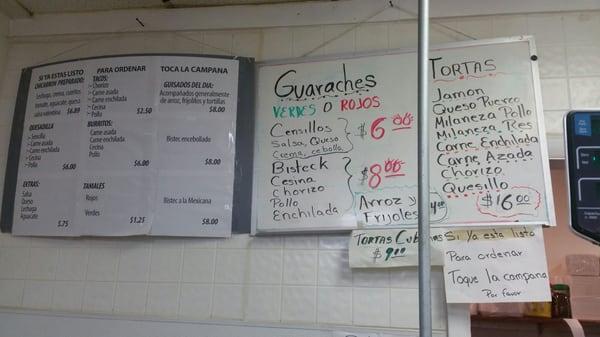 SI YA ESTAS LISTO
CHICHARRON PREPARADO:
Lechuga, crema, cueritos
tomate, aguacate, queso
salsa valentina $6.89
QUESADILLA
Sencilla
Carne asada
Carne enchilada
Cecina
Pollo
$6.00
EXTRAS:
Salsa
Queso
Lechuga
Aguacate
$.75
PARA ORDENAR
TACOS:
Chorizo
Carne asada
Carne enchilada
Cecina
Pollo $2.50
BURRITOS:
Carne asada
Carne enchilada
Cecina
Pollo
$6.00
TAMALES
Rojos
Verdes $1.25
TOCA LA CAMPANA
GUISADOS DEL DIA:
Acompañados generalmente
de arroz, frijolitos y tortillas
$8.00
Bistec encebollado
$8.00
Bistec a la Mexicana
$8.00
Guaraches
VERDES O ROJOS
Censillos
Salsa, Queso
Crema, cebolla
$6.00
Bisteck
Cesina
Chorizo
Pollo
Enchilada
$8.00
Arroz y
Frijoles
TORTAS
Jamon
Queso Puerro
Milaneza Pollo
Milaneza Res
Carne Enchilada
Carne Azada
Chorizo
Quesillo
$16.00
$9.00
Si Ya esta listo
Para ordenar
Toque la campana
Por favor